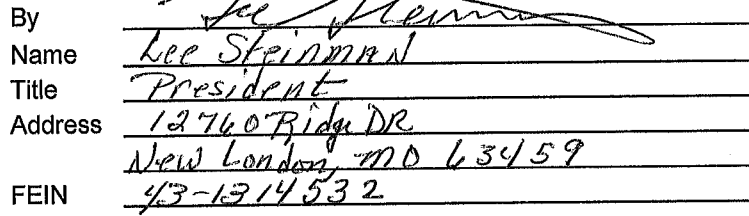 By Lee Steinman
Name Lee Steinman
Title President
Address 12760 Ridge DR
New London, MO 63459
FEIN 43-1314532